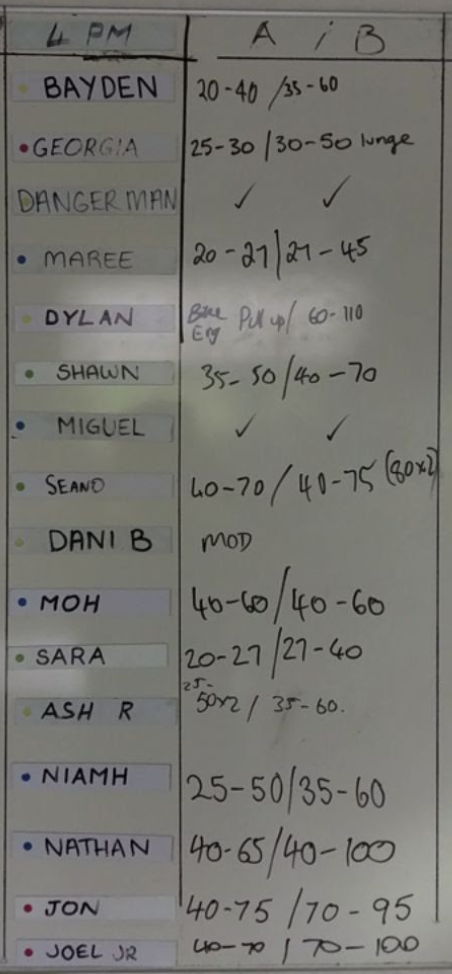 4 PM A / B
BAYDEN 20-40 /35-60
GEORGIA 25-30 /30-50 lunge
DANGERMAN ✓ ✓
MAREE 20-27/27-45
DYLAN Bike Erg Pull up/ 60-110
SHAWN 35-50/40-70
MIGUEL ✓ ✓
SEANO 40-70 / 40-75 (80x2)
DANI B MOD
MOH 40-60/40-60
SARA 20-27/27-40
ASH R 25-50x2 / 35-60.
NIAMH 25-50/35-60
NATHAN 40-65/40-100
JON 40-75 /70-95
JOEL JR 40-70 / 70-100